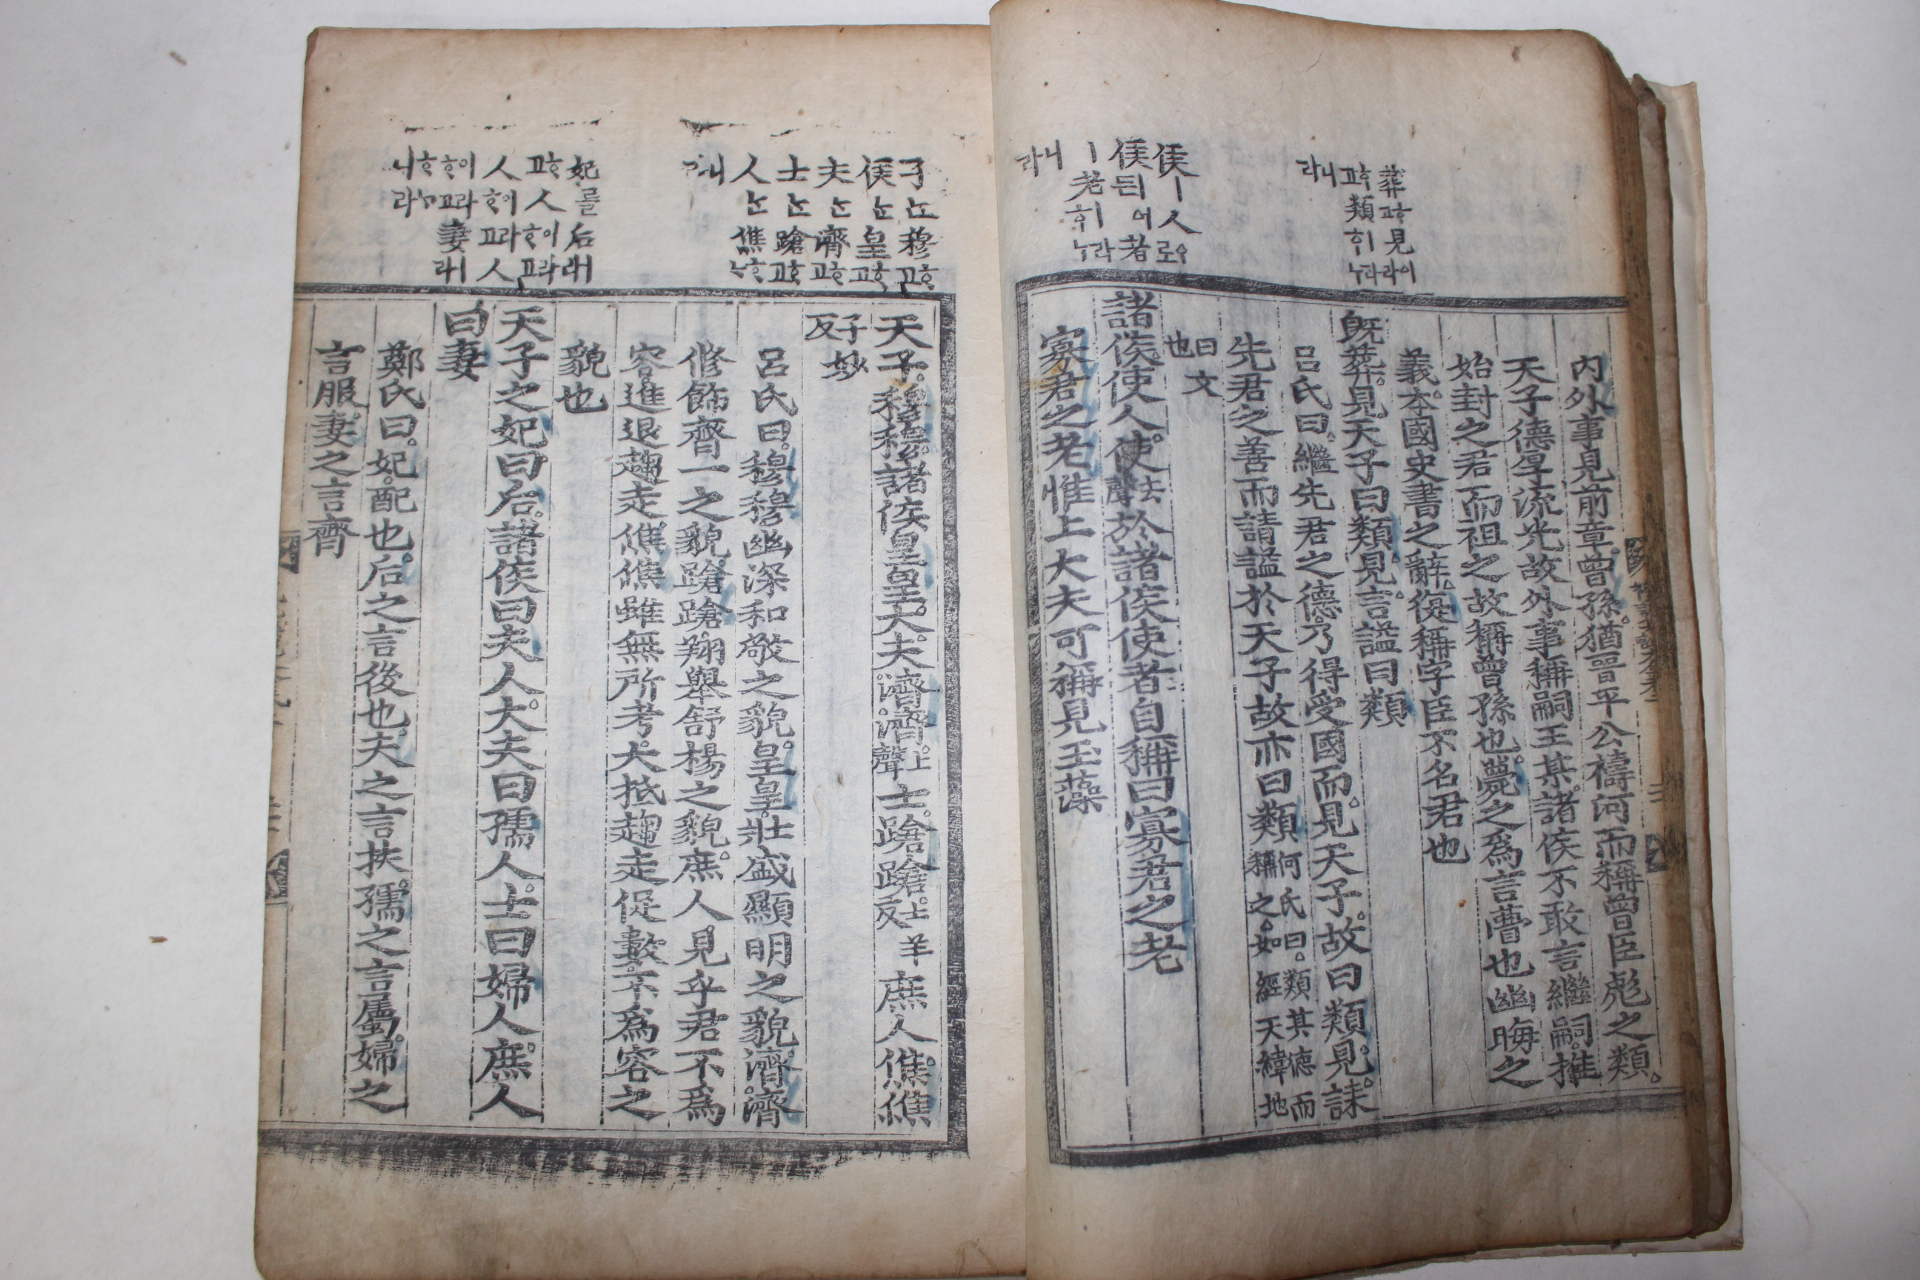 葬고見라이
고類히
니누라
라
侯ㅣ人로
侯되여者
ㅣ老히
니누라
라
內外事見前章曾孫猶晉平公禱河而稱曾臣彪之類
天子德厚流光故外事稱嗣王某諸侯不敢言繼嗣推
始封之君而祖之故稱曾孫也薨之爲言瞢也幽晦之
義本國史書之辭復稱字臣不名君也
旣葬見天子曰類見言諡曰類
呂氏曰繼先君之德乃得受國而見天子故曰類見誄
先君之善而請諡於天子故亦曰類何氏曰類其德而
稱之如經天緯地
曰文
也
諸侯使人使去聲於諸侯使者自稱曰寡君之老
寡君之老惟上大夫可稱見玉藻
子는穆고
侯는皇고
夫는濟고
士는蹌고
人는僬
니
妃를后래
고人이고라
人이고라人
이고라妻래
니라
天子穆穆諸侯皇皇大夫濟濟上聲士蹌蹌士羊反庶人僬僬
子妙
反
呂氏曰穆穆幽深和敬之貌皇皇壯盛顯明之貌濟濟
修飾齊一之貌蹌蹌翔擧舒揚之貌庶人見乎君不爲
容進退趨走僬僬雖無所考大抵趨走促數不爲容之
貌也
天子之妃曰后諸侯曰夫人大夫曰孺人士曰婦人庶人
曰妻
鄭氏曰妃配也后之言後也夫之言扶孺之言屬婦之
言服妻之言齊